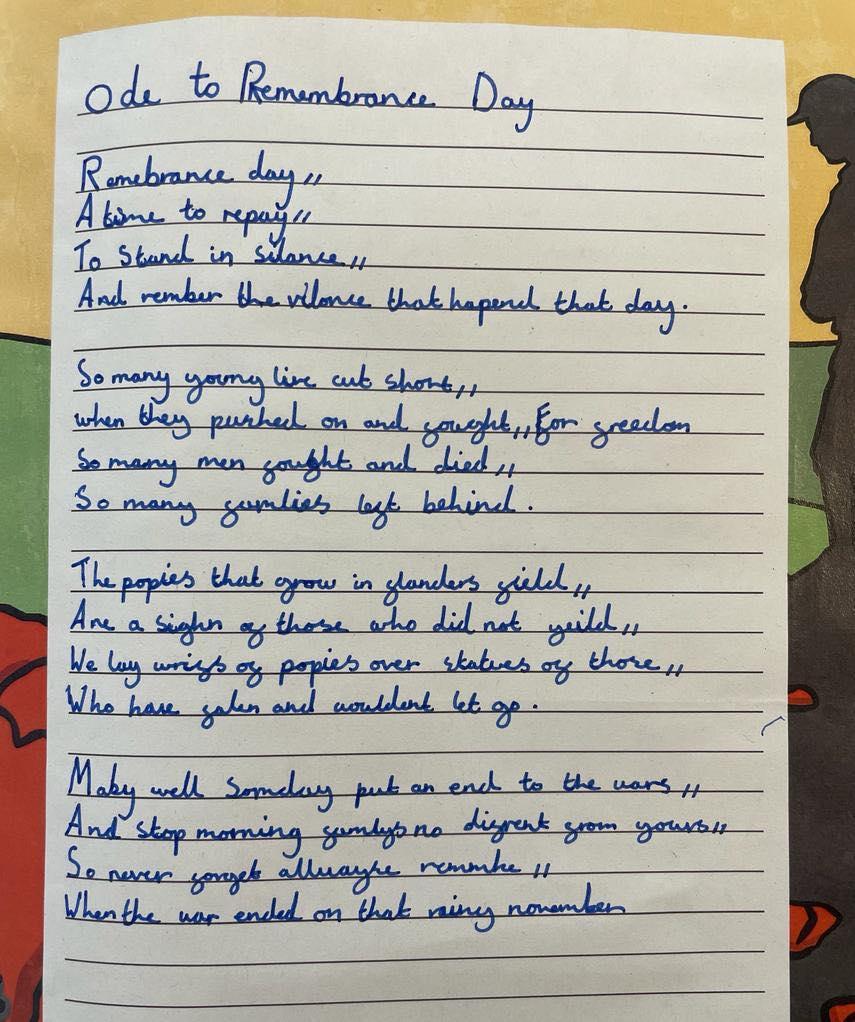 Ode to Remembrance Day
Remebrance day,,
A time to repay,,
To Stand in silance,,
And rember the vilonce that hapend that day.
So many young live cut short,,
when they pushed on and fought,, for freedom
So many men fought and died,,
So many famlies left behind.
The popies that grow in flanders field,,
Are a sighn of those who did not yeild,,
We lay wriefs of popies over statues of those,,
Who have falen and wouldent let go.
Maby well Somday put an end to the wars,,
And stop morning famlys no difrent from yours,,
So never forget allwayse
When the war ended on that rainy november